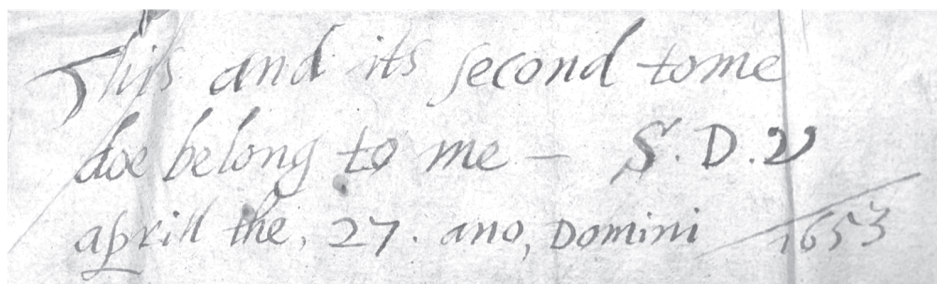 This and its second tome
doe belong to me – S. D. V
aprill the, 27. ano, Domini 1653